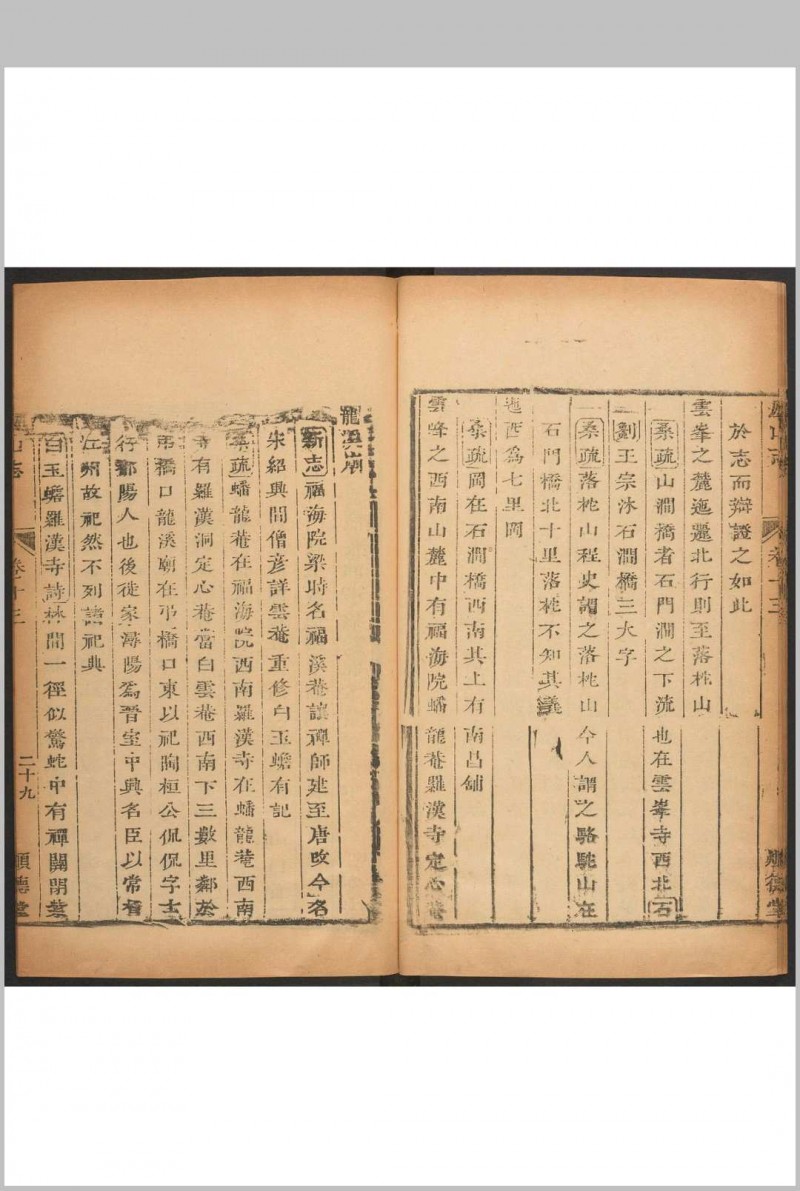 於志而辯證之如此
雲峯之麓迤邐北行則至落梐山
桑疏山澗橋者石門澗之下流也在雲峯寺西北石
刻王宗沐石澗橋三大字
桑疏落梐山桯史謂之落梐山今人謂之駱駝山在
石門橋北十里落梐不知其義
迤西爲七里岡
桑疏岡在石澗橋西南其上有南昌舖
雲峰之西南山麓中有福海院蟠龍菴羅漢寺定心菴
龍溪廟
新志福海院梁時名福溪菴讓禪師建至唐改今名
宋紹興間僧彦詳雲菴重修白玉蟾有記
桑疏蟠龍菴在福海院西南羅漢寺在蟠龍菴西南
寺有羅漢洞定心菴當白雲菴西南下三數里鄰於
弔橋口龍溪廟在弔橋口東以祀陶桓公侃侃字士
行鄱陽人也後徙家潯陽爲晉室中興名臣以常督
江州故祀然不列諸祀典
白玉蟾羅漢寺詩林間一徑似驚蛇中有禪關閉紫
山志
卷十三
二十九
順德堂